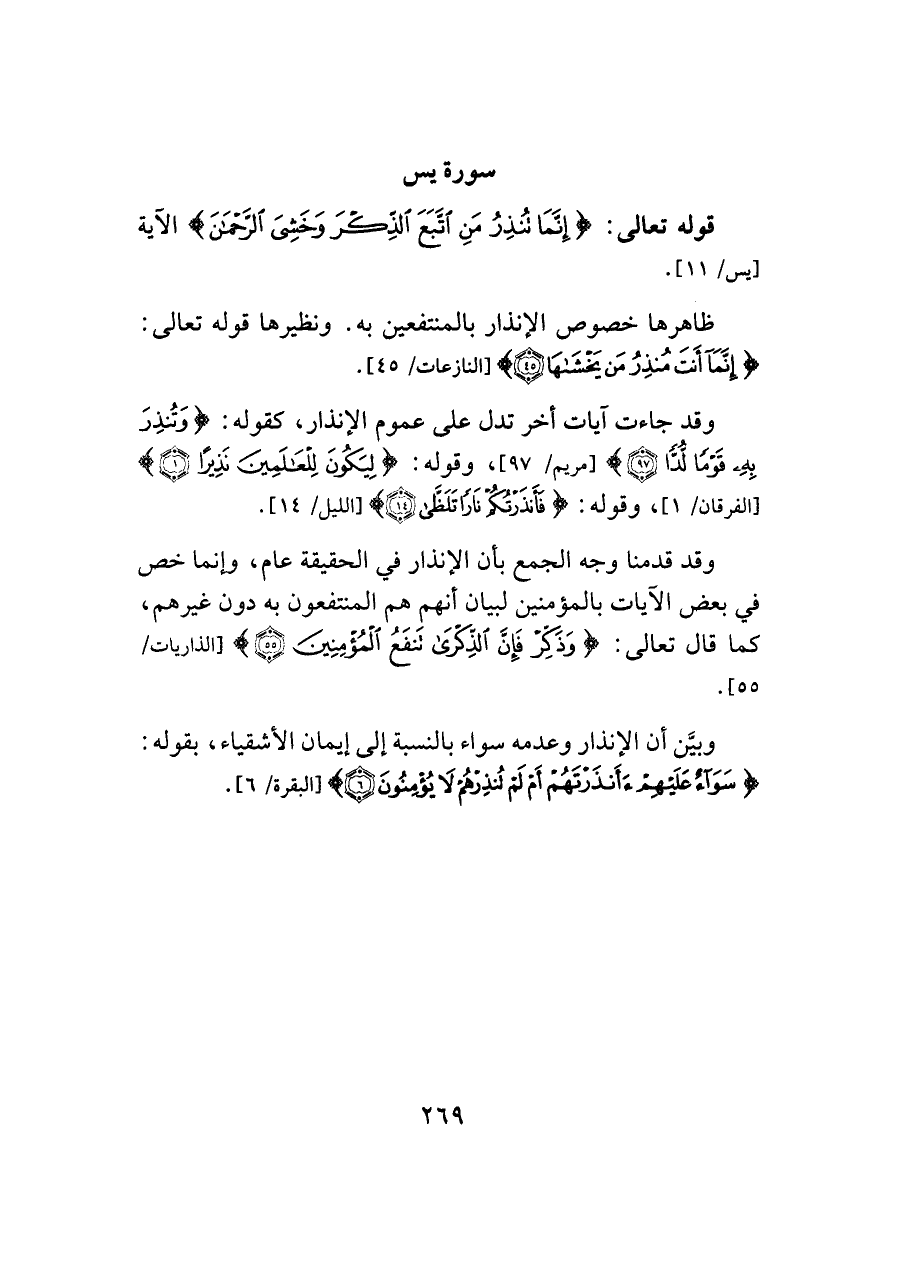 سورة يس
قوله تعالى: ﴿إِنَّمَا نُنذِرُ مَنِ ٱتَّبَعَ ٱلذِّكۡرَ وَخَشِىَ ٱلرَّحۡمَٰنَ﴾ الآية
[يس/ ١١].
ظاهرها خصوص الإنذار بالمنتفعين به. ونظيرها قوله تعالى:
﴿إِنَّمَآ أَنتَ مُنذِرُ مَن يَخۡشَىٰهَا ٤٥﴾ [النازعات/ ٤٥].
وقد جاءت آيات أخر تدل على عموم الإنذار، كقوله: ﴿وَتُنذِرَ
بِهِۦ قَوۡمٗا لُّدّٗا ٩٧﴾ [مريم/ ٩٧]، وقوله: ﴿لِيَكُونَ لِلۡعَٰلَمِينَ نَذِيرًا ١﴾
[الفرقان/ ١]، وقوله: ﴿فَأَنذَرۡتُكُمۡ نَارٗا تَلَظَّىٰ ١٤﴾ [الليل/ ١٤].
وقد قدمنا وجه الجمع بأن الإنذار في الحقيقة عام، وإنما خص
في بعض الآيات بالمؤمنين لبيان أنهم هم المنتفعون به دون غيرهم،
كما قال تعالى: ﴿وَذَكِّرۡ فَإِنَّ ٱلذِّكۡرَىٰ تَنفَعُ ٱلۡمُؤۡمِنِينَ ٥٥﴾ [الذاريات/
٥٥].
وبيَّن أن الإنذار وعدمه سواء بالنسبة إلى إيمان الأشقياء، بقوله:
﴿سَوَآءٌ عَلَيۡهِمۡ ءَأَنذَرۡتَهُمۡ أَمۡ لَمۡ تُنذِرۡهُمۡ لَا يُؤۡمِنُونَ ٦﴾ [البقرة/ ٦].
٢٦٩